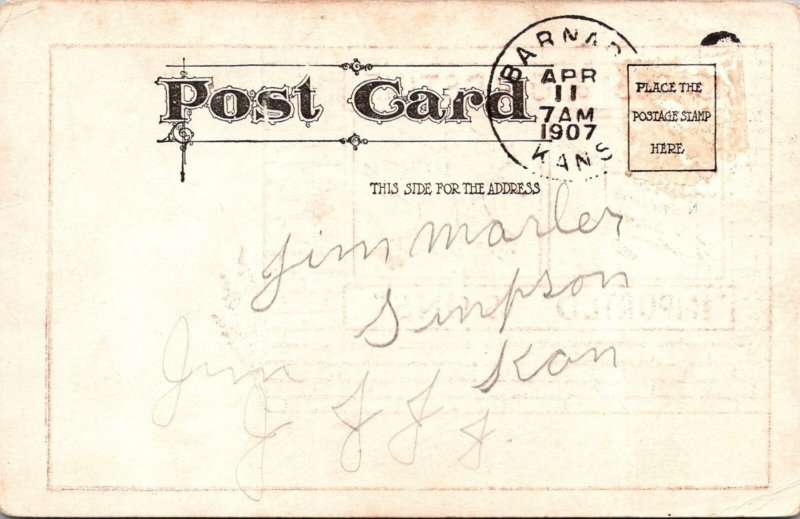 Post Card
BARNAR
APR
11
7 AM
1907
KANS
PLACE THE
POSTAGE STAMP
HERE
THIS SIDE FOR THE ADDRESS
Jim Marler
Simpson
Kan
Jim
J J J J